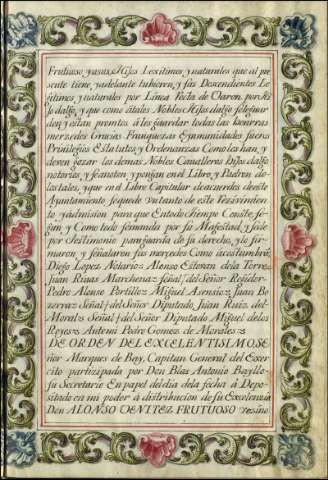 Frutuoso yasus Hijos Lexitimos y naturales que al pre
sente tiene, yadelante tubiere, y sus Descendientes Le
xitimos y naturales por Linea Recta de Varon, por Hi
jo dalgo, y que como átales Nobles Hijos dalgo seleguar
den, y estan promtos á les guardar todas las honrras
merzedes Gracias Franquezas Exmmunidades fueros
Privilejios Estatutos, y Ordenanzas Como les han, y
deven gozar los demas Nobles Cavalleros Dijos dalgo
notorios, y se anoten, y pongan en el Libro, y Padron de
los tales, y que en el Libro Capitular de acuerdos de este
Ayuntamiento sequede un tanto de este Rezivimien
to, y admision para que Entodo tiempo Conste, se fir
gen, y Como todo semanda por su Majestad, y se de
por Testimonio para guarda de su derecho, y lo fir
maron, y señalaron sus merzedes Como acostumbrã
Diego Lopez Notario = Alonso Estevan dela Torre =
Juan Rivas Marchena = señal del Señor Rejidor
Pedro Alonso Portillo = Miguel Asensio = Juan Be
zerra = Señal del Señor Diputado, Juan Ruiz del
Moral = Señal del Señor Diputado Miguel delos
Reyes = Antemi Pedro Gomez de Morales =
DE ORDEN DEL EXCELENTISIMO SE
ñor Marques de Bay, Capitan General del Exer
cito partizipada por Don Blas Antonio Bayllo
su Secretario En papel del dia dela fecha á Depo
sitado en mi poder á distribucion de su Excelencia
Don ALONSO BENITEZ FRUTUOSO vezino